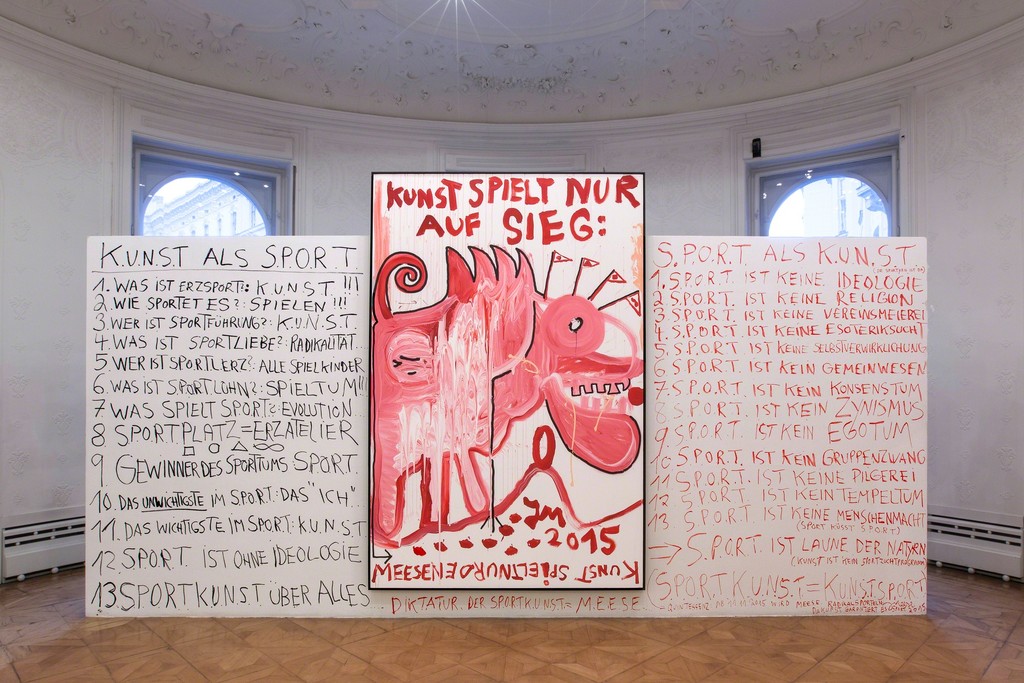 K.U.N.S.T ALS S.P.O.R.T
1. WAS IST ERZSPORT?: K.U.N.S.T !!!
2. WIE SPORTET ES?: SPIELEN!!!
3. WER IST SPORTFÜHRUNG?: K.U.N.S.T
4. WAS IST SPORTLIEBE?: RADIKALITÄT..
5. WER IST SPORTLERZ?: ALLE SPIELKINDER
6. WAS IST SPORTLOHN?: SPIELTUM!!!
7 WAS SPIELT SPORT?: EVOLUTION..
8 SPORTPLATZ=ERZATELIER
9 GEWINNER DES SPORTTUMS SPORT
10. DAS UNWICHTIGSTE IM SPORT: DAS "ICH"
11. DAS WICHTIGSTE IM SPORT: K.U.N.S.T
12. SPORT IST OHNE IDEOLOGIE
13 SPORTKUNST ÜBER ALLES
KUNST SPIELT NUR
AUF SIEG:
JM
2015
MEESEN
KUNST SPIELT NUR DEN
DIKTATUR DER SPORTKUNST= M.E.E.S.E
S.P.O.R.T ALS K.U.N.S.T
1. S.P.O.R.T. IST KEINE IDEOLOGIE
2 S.P.O.R.T. IST KEINE RELIGION
3. S.P.O.R.T. IST KEINE VEREINSMEIEREI
4. S.P.O.R.T. IST KEINE ESOTERIKSUCHT
5. S.P.O.R.T. IST KEINE SELBSTVERWIRKLICHUNG
6 S.P.O.R.T. IST KEIN GEMEINWESEN
7 S.P.O.R.T. IST KEIN KONSENSTUM
8 S.P.O.R.T. IST KEIN ZYNISMUS
9 S.P.O.R.T. IST KEIN EGOTUM
10 S.P.O.R.T. IST KEIN GRUPPENZWANG
11 S.P.O.R.T. IST KEINE PILGEREI
12 S.P.O.R.T. IST KEIN TEMPELTUM
13. S.P.O.R.T. IST KEINE MENSCHENMACHT
(SPORT KÜSST S.P.O.R.T)
→ S.P.O.R.T. IST LAUNE DER NATUREN
(KUNST IST KEIN SPORTZUCHTPROGRAMM)
SPORTKUNST=KUNSTSPORT